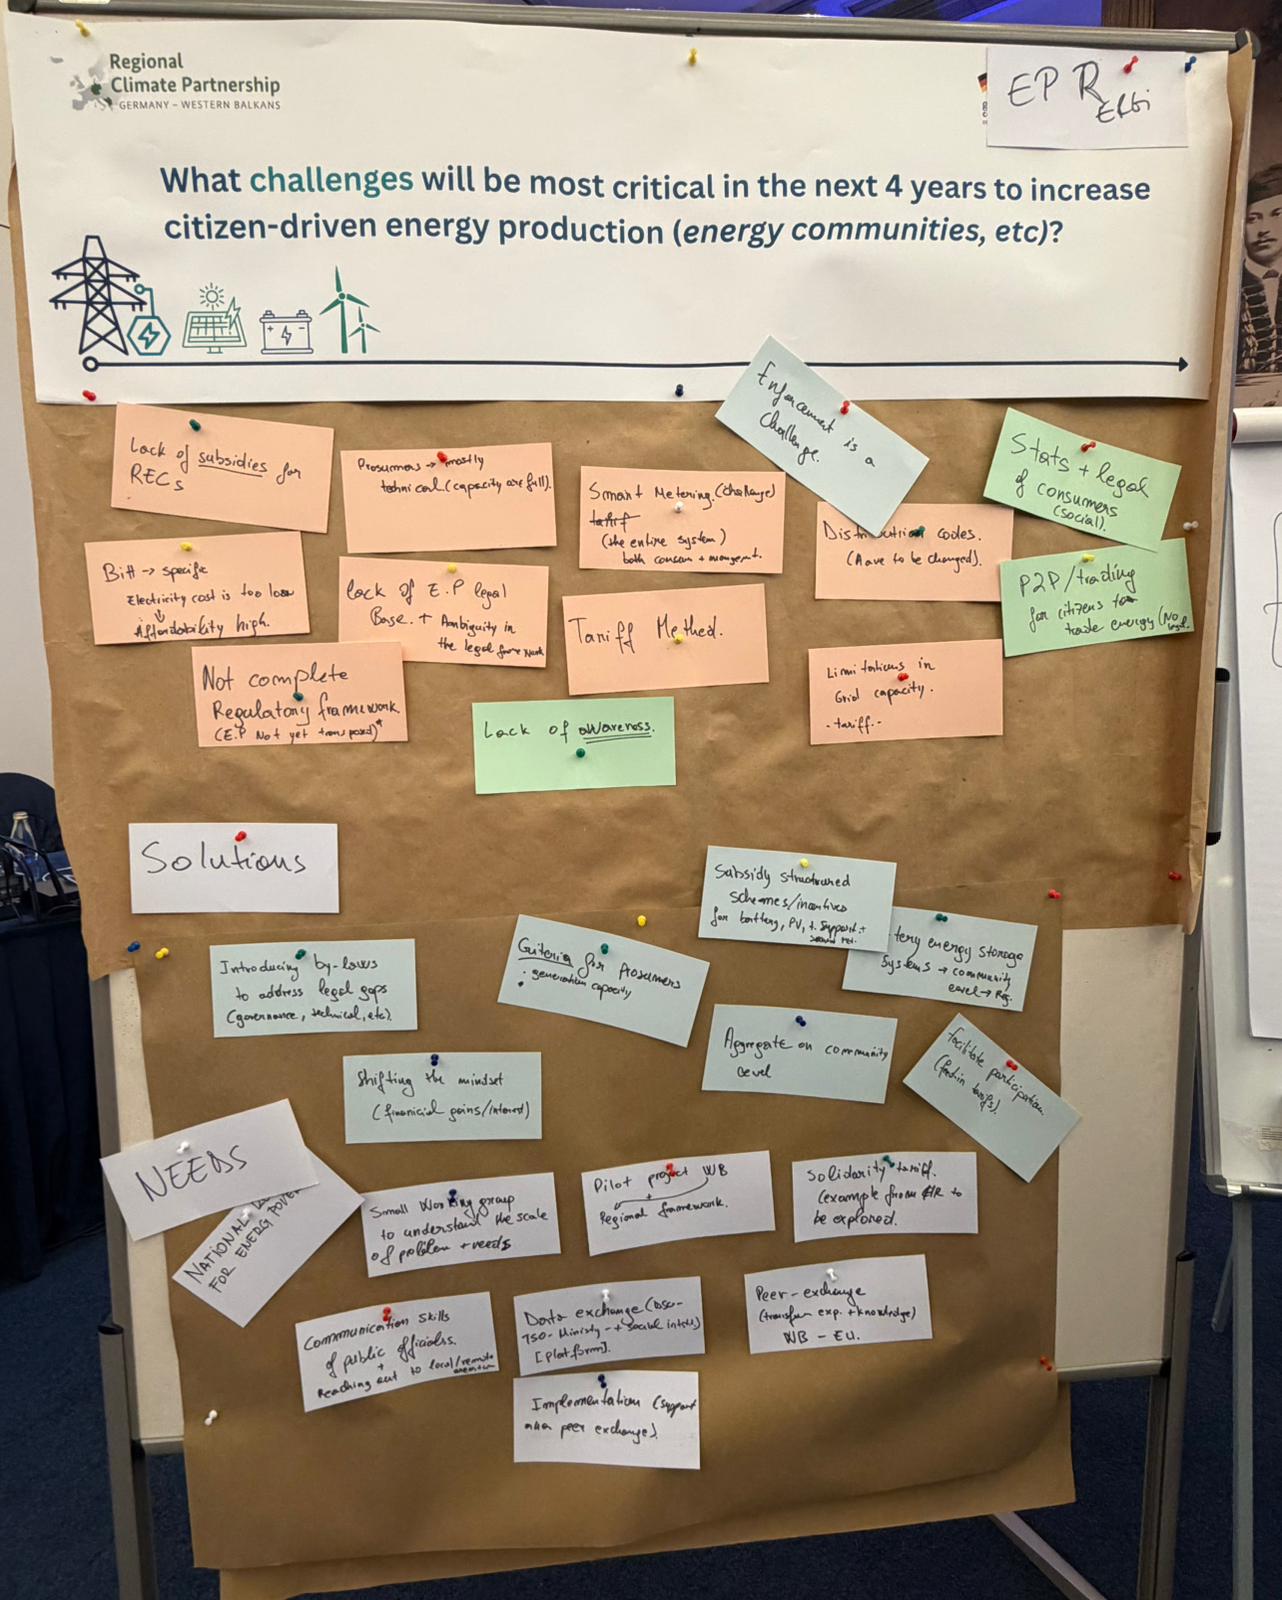 Regional
Climate Partnership
GERMANY – WESTERN BALKANS
EP R
What challenges will be most critical in the next 4 years to increase
citizen-driven energy production (energy communities, etc)?
Enforcement is a
challenge.
Lack of subsidies for
RECs
Prosumers → mostly
technical (capacity are full).
Smart Metering (challenge)
tariff
(the entire system)
both consum + management.
Distribution codes.
(Have to be changed).
Stats + legal
of consumers
(social).
BiH → specific
Electricity cost is too low
Affordability high.
Lack of E.P legal
Base. + Ambiguity in
the legal framework
Tariff Method.
P2P/trading
for citizens to
trade energy (No
legal.
Not complete
Regulatory framework.
(E.P Not yet transposed)*
Lack of awareness.
Limitations in
Grid capacity.
- tariff.-
Solutions
Subsidy structured
schemes/incentives
for battery, PV, + support +
Introducing by-laws
to address legal gaps
(governance, technical, etc).
Criteria for Prosumers
• generation capacity
•
tery energy storage
systems → community
level → Reg.
Shifting the mindset
(financial gains/interest)
Aggregate on community
level
facilitate participation.
(feed in tariffs).
NEEDS
NATIONAL
FOR ENERG POVER
Small Working group
to understand the scale
of problem + needs
Pilot project WB
+
Regional framework.
Solidarity tariff.
(example from GR to
be explored.
Communication skills
of public officials.
+
Reaching out to local/remote
Data exchange (DSO-
TSO- Ministry - + social instit)
[platform].
Peer-exchange
(transfer exp. + knowledge)
WB – EU.
Implementation (support
aka peer exchange)